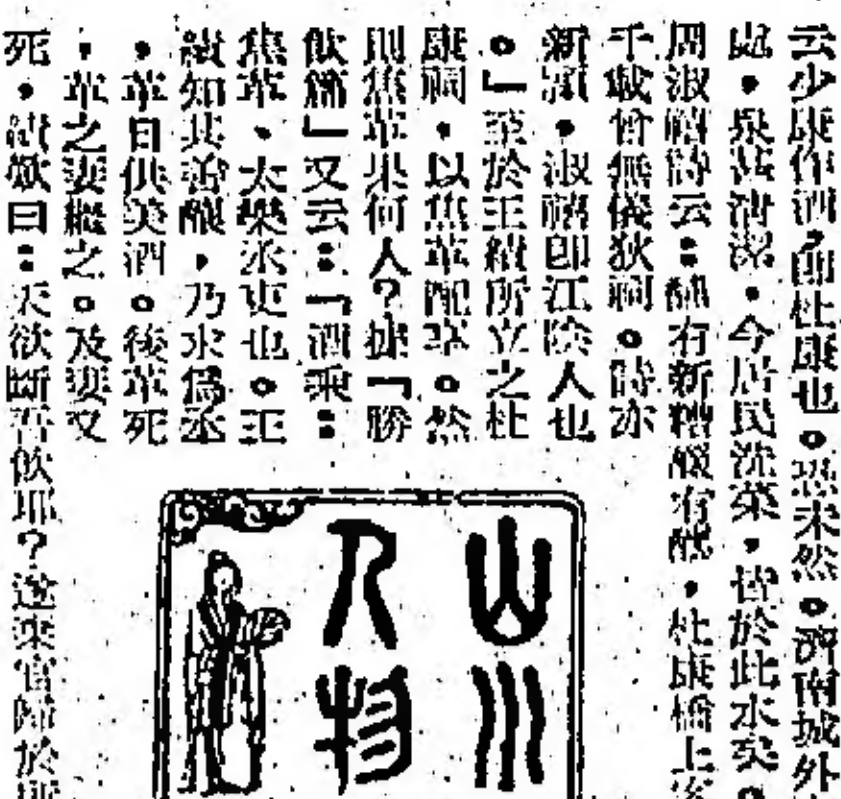 云少康作酒，卽杜康也。恐未然。濟南城外
處，泉甚清潔，今居民洗菜，皆於此水矣。
周淑禧詩云：酴有新糟醱有醮，杜康橋上
千載曾無儀狄祠。時亦
新頴，淑禧卽江陰人也
。」至於王績所立之杜
康祠，以焦革配享。然
則焦革果何人？據「勝
飲篇」又云：「酒乘：
焦革、太樂丞吏也。王
績知其善釀，乃求爲丞
，革日供美酒。後革死
，革之妻繼之。及妻又
死，績歎曰：天欲斷吾飲耶？遂棄官歸於
山川
人物